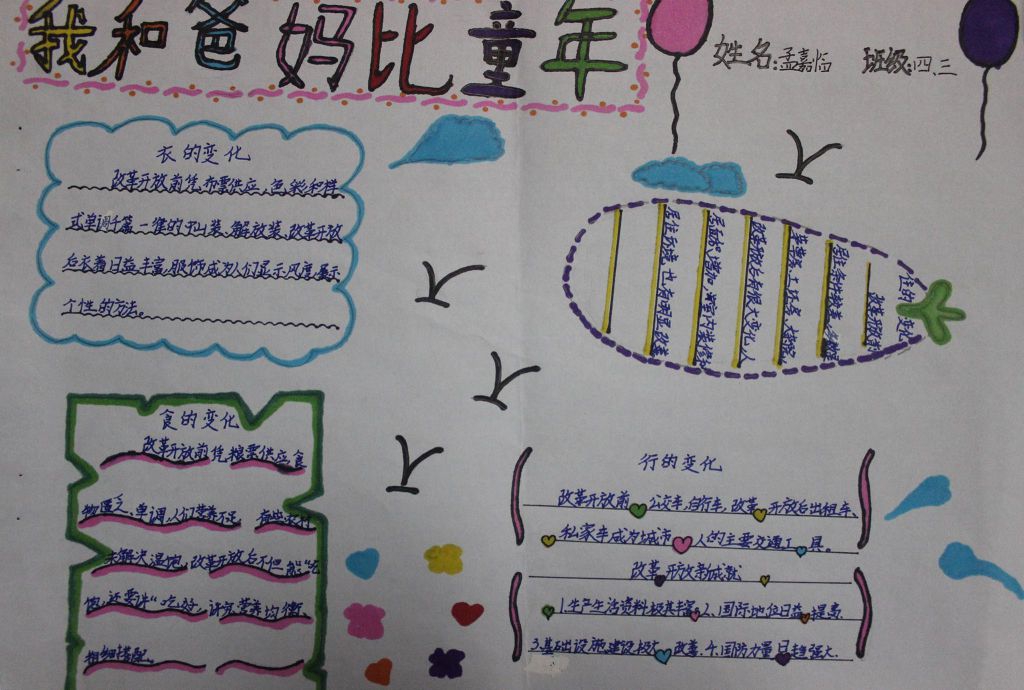 我和爸妈比童年
姓名:孟嘉临 班级:四、三
衣的变化
改革开放前凭布票供应,色彩和样
式单调千篇一律的中山装、解放装、改革开放
后衣着日益丰富,服饰成为人们显示风度、展示
个性的方法。
住的变化
改革开放前
居住条件较差
改革开放后有很大变化,人
居面积增加,室内装修和
居住环境也有明显改善
食的变化
改革开放前凭粮票供应食
物匮乏、单调,人们营养不足
未解决温饱,改革开放后不但能"吃
饱,还要讲"吃好,讲究营养均衡、
粗细搭配。
行的变化
改革开放前 公交车,自行车,改革开放后出租车、
私家车成为城市人的主要交通工具。
改革开放新成就
1.生产生活资料极其丰富,2、国际地位日益提高.
3.基础设施建设极大改善.4.国防力量日趋强大.